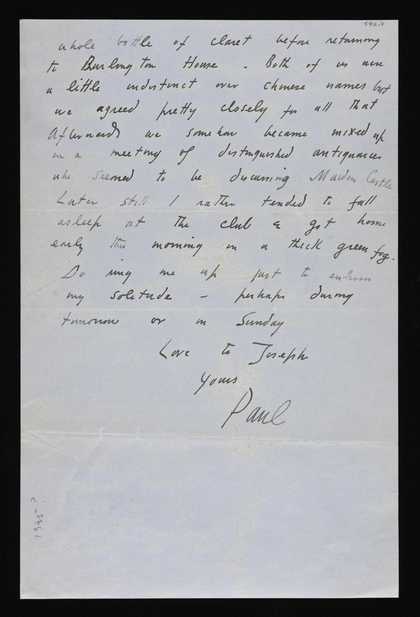 whole bottle of claret before returning
to Burlington House. Both of us were
a little indistinct over chinese names but
we agreed pretty closely for all that
Afterwards we somehow became mixed up
in a meeting of distinguished antiquaries
who seemed to be discussing Maiden Castle
Later still I rather tended to fall
asleep at the club & got home
early this morning in a thick green fog.
Do ring me up just to enliven
my solitude – perhaps during
tomorrow or on Sunday
Love to Joseph
Yours
Paul
1935?